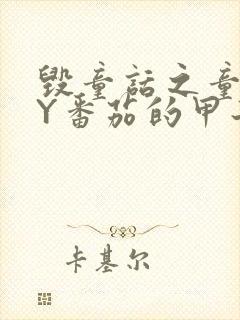 毁童话之童
Y番茄的甲
卡基尔